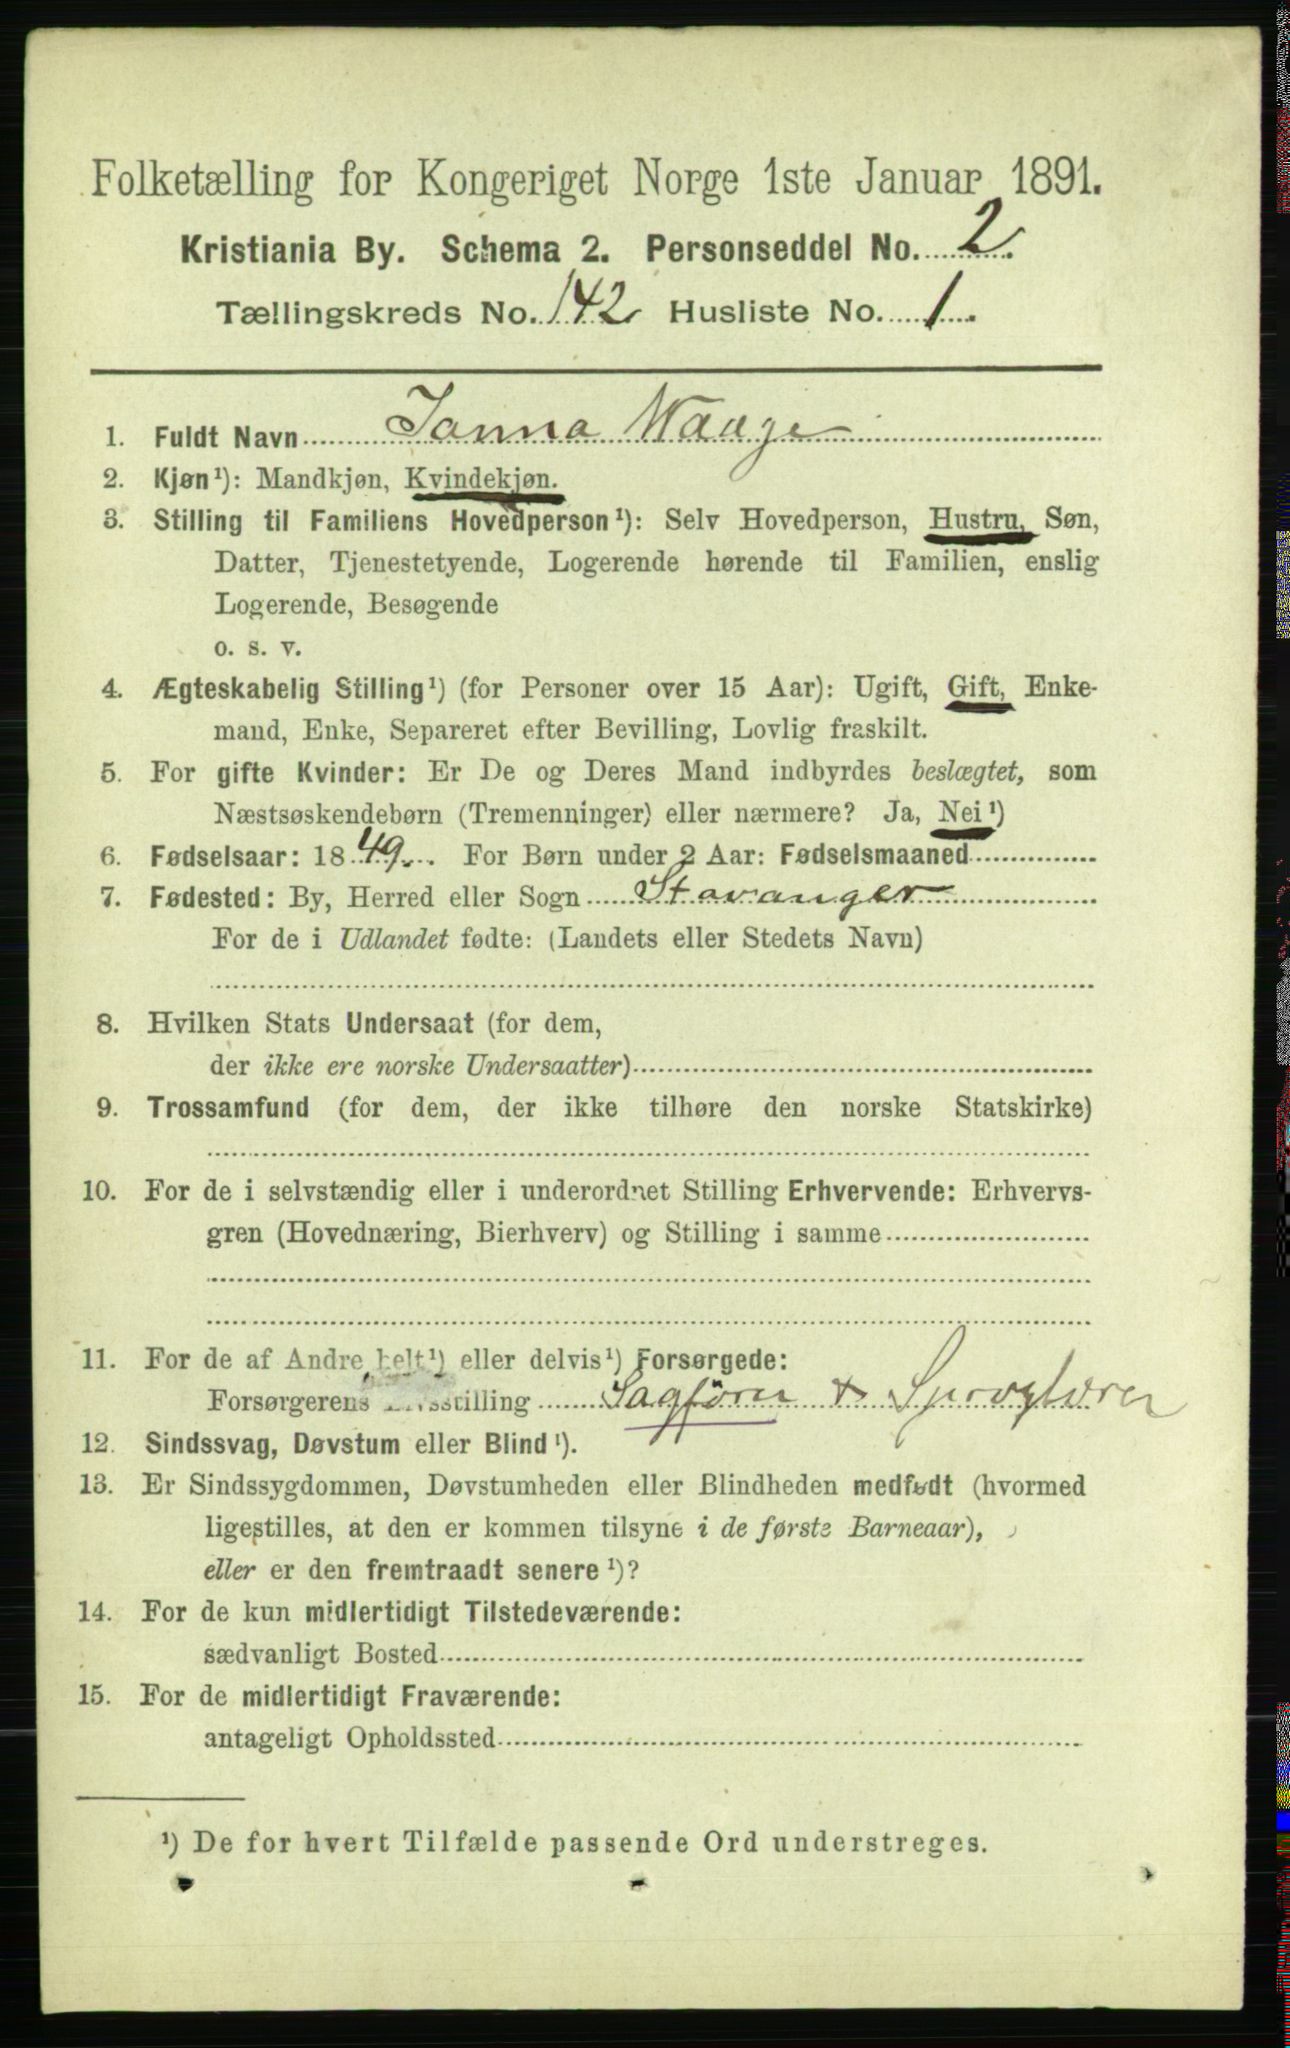 Folketælling for Kongeriget Norge 1ste Januar 1891.
Kristiania By. Schema 2. Personseddel No. 2.
Tællingskreds No. 142 Husliste No. 1.
1. Fuldt Navn Janna Waage
2. Kjøn¹): Mandkjøn, Kvindekjøn.
3. Stilling til Familiens Hovedperson¹): Selv Hovedperson, Hustru, Søn,
Datter, Tjenestetyende, Logerende hørende til Familien, enslig
Logerende, Besøgende
o. s. v.
4. Ægteskabelig Stilling¹) (for Personer over 15 Aar): Ugift, Gift, Enke-
mand, Enke, Separeret efter Bevilling, Lovlig fraskilt.
5. For gifte Kvinder: Er De og Deres Mand indbyrdes beslægtet, som
Næstsøskendebørn (Tremenninger) eller nærmere? Ja, Nei¹)
6. Fødselsaar: 1849. For Børn under 2 Aar: Fødselsmaaned
7. Fødested: By, Herred eller Sogn Stavanger
For de i Udlandet fødte: (Landets eller Stedets Navn)
8. Hvilken Stats Undersaat (for dem,
der ikke ere norske Undersaatter)
9. Trossamfund (for dem, der ikke tilhøre den norske Statskirke)
10. For de i selvstændig eller i underordnet Stilling Erhvervende: Erhvervs-
gren (Hovednæring, Bierhverv) og Stilling i samme
11. For de af Andre helt¹) eller delvis¹) Forsørgede:
Forsørgerens Livsstilling Sagförer &
12. Sindssvag, Døvstum eller Blind¹).
13. Er Sindssygdommen, Døvstumheden eller Blindheden medfødt (hvormed
ligestilles, at den er kommen tilsyne i de første Barneaar),
eller er den fremtraadt senere¹)?
14. For de kun midlertidigt Tilstedeværende:
sædvanligt Bosted
15. For de midlertidigt Fraværende:
antageligt Opholdssted
¹) De for hvert Tilfælde passende Ord understreges.